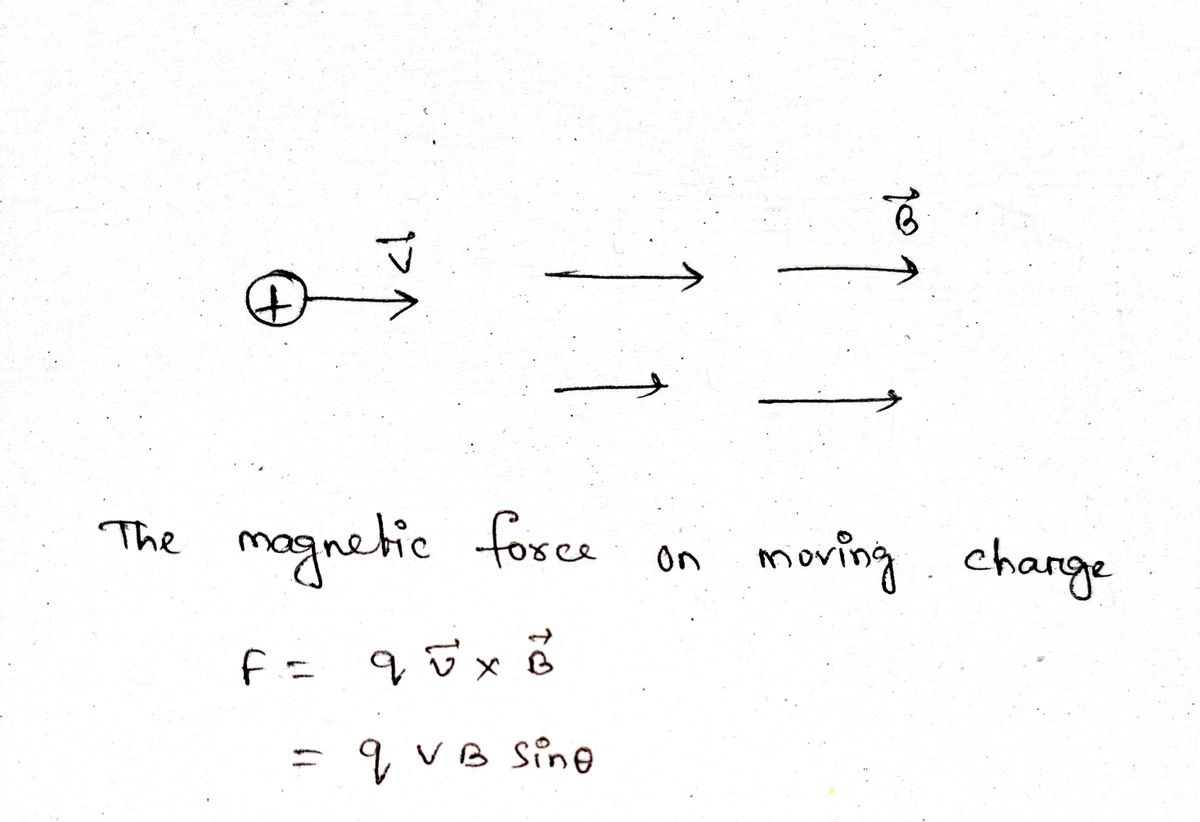 V⃗
B⃗
+
The magnetic force on moving charge
F = q v⃗ × B⃗
= q V B Sinθ